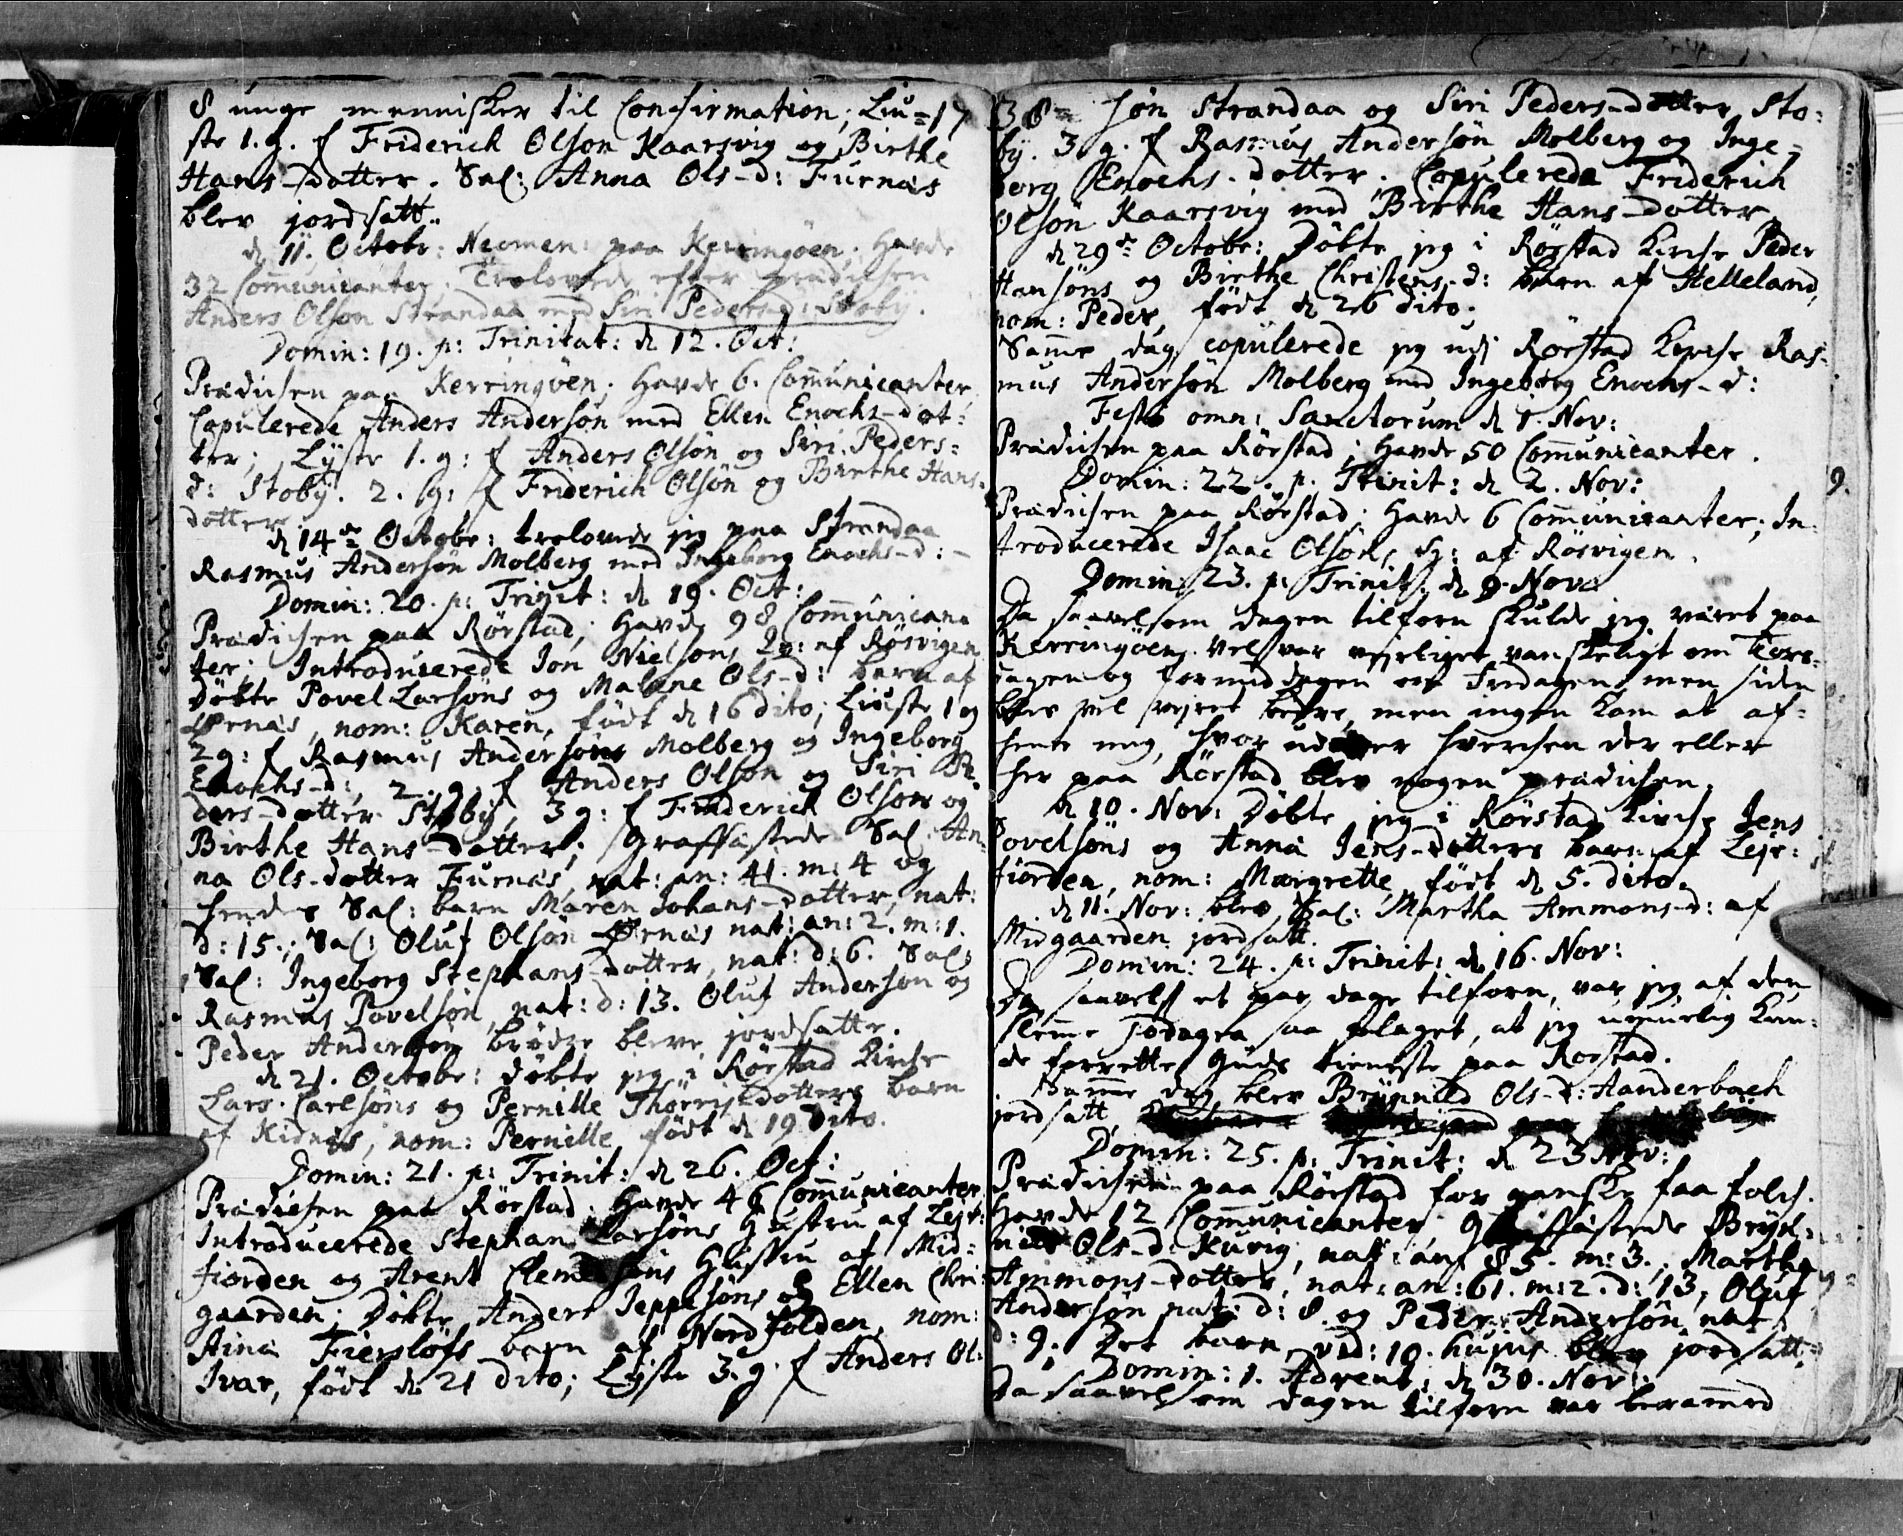 8 unge mennisker til Confirmation; Liu= 17
ste 1. g. f Friderich Olson Kaarsvig og Birthe
Hans-dotter. Sal: Anna Ols-d: Furnæs
blev jordsatt.
d 11. Octobr: Neomen: paa Kerringöen; Havde
32 Communicanter. Trolovede efter prædicken
Anders Olson Strandaa med Siri Peders-d: Stoby.
Domin: 19. p: Trinitat: d 12. Oct:
Prædicken paa Kerringöen; Havde 6. Communicanter
Copulerede Anders Anderson med Ellen Enochs-dot-
ter; Lÿste 1. g: f Anders Olsön og Siri Peders-
d: Stobÿ. 2. g: f Friderich Olsön og Birthe Hans-
dotter.
d 14de Octobr: trolovede jeg paa Strandaa
Rasmus Andersön Molberg med Ingeborg Enochs-d:
Domin: 20. p: Trinit: d 19. Oct:
Prædicken paa Rörstad; Havde 98 Communican-
ter; Introducerede Jon Nielsons Qv: af Rösvigen
Döbte Povel Larsöns og Malene Ols-d: barn af
Ørnæs, nom: Karen, födt d 16 dito; Liuste 1 og
2 g: f Rasmus Andersöns Molberg og Ingeborg
Enochs-d:, 2. g. f Anders Olson og Siri Pe-
ders-dotter Stobÿ, 3 g: f Friderich Olson og
Birthe Hans-dotter; Graffästede Sal An-
na Ols-dotter Furnæs, nat: an: 41. m: 4 og
hendes Sal: barn Maren Johans-dotter, nat:
d: 15.; Sal: Oluf Olsön Ørnæs nat: an: 2. m: 1.
Sal: Ingeborg Stephans-dotter, nat: d: 6. Sal:
Rasmus Povelsön, nat: d: 13. Oluf Anderson og
Peder Anderson brödre bleve jordsatte.
d 21. Octobr: döbte jeg i Rörstad Kirche
Lars Carlsöns og Pernille Thorris-dotters barn
af Kidnæs, nom: Pernille, födt d 19 Dito.
Domin: 21. p: Trinit: d 26. Oct:
Prædicken paa Rörstad; Havde 46 Communicanter
Introducerede Stephan Larsöns Hustru af Lejr-
fiorden og Arent Clemetsöns Hustru af Mid-
gaarden; Döbte Anders Jeppesöns og Ellen Chri-
stina Fierslöfs barn af Nordfolden, nom:
Ivar, födt d 21 dito; Lÿste 3. g. f Anders Ol-
38 sön Strandaa og Siri Peders-dotter Sto-
bÿ. 3 g. f Rasmus Andersön Molberg og Inge-
borg Enochs-dotter. Copulerede Friderich
Olsön Kaarsvig med Birthe Hans-dotter
d 29de Octobr: Döbte jeg i Rörstad Kirche Peder
Hansöns og Birthe Christens-d: barn af Helleland,
nom: Peder, födt d 26 dito.
Samme dag copulerede jeg udi Rörstad Kirche Ras-
mus Andersön Molberg med Ingeborg Enochs-d:
Festo omn: Sanctorum d 1. Nov:
Prædicken paa Rörstad; Havde 50 Communicanter.
Domin: 22. p. Trinit: d 2. Nov: 9.
Prædicken paa Rörstad; Havde 6 Communicanter; In-
troducerede Isaac Olsöns Q: af Rösvigen.
Domin: 23. p: Trinit: d 9. Nov:
Da saavelsom dagen tilforn skulde jeg været paa
Kerringöen. Vel var vejrliget vanskeligt om Tors-
dagen og formiddagen af Fredagen, men siden
blev vel vejret bedre, men ingen kom at af-
hente mig, hvor udover hverchen der eller
her paa Rörstad blev nogen prædicken.
d 10. Nov: Döbte jeg i Rörstad Kirche Jens
Povelsöns og Anna Jens-dotters barn af Lejr-
fiorden, nom: Margrette, födt d 5. dito.
d 11. Nov: blev Sal: Martha Ammons-d: af
Midgaarden jordsatt.
Domin: 24. p: Trinit: d 16. Nov:
Da saavels et par dage tilforn, var jeg af den
slemme Podagra saa plaget, at jeg umuelig kun-
de forrette Guds tieneste paa Rorstad.
Samme dag blev Brÿnnild Ols-d: Aanderbach
jordsatt
Domin: 25. p: Trinit: d 23 Nov:
Prædicken paa Rörstad for ganske faa folch.
Havde 12 Communicanter. Graffästede Brÿn-
nild Ols-d: Kuvig, nat: an: 85. m: 3., Martha
Ammons-dotter, nat: an: 61. m: 2. d: 13, Oluf
Andersön nat: d: 8. og Peder Andersön nat:
d: 9. Det barn ved: 10. hujus blev jordsatt.
Domin: 1. Advent: d 30. Nov:
Da saavelsom dagen tilforn var berammed